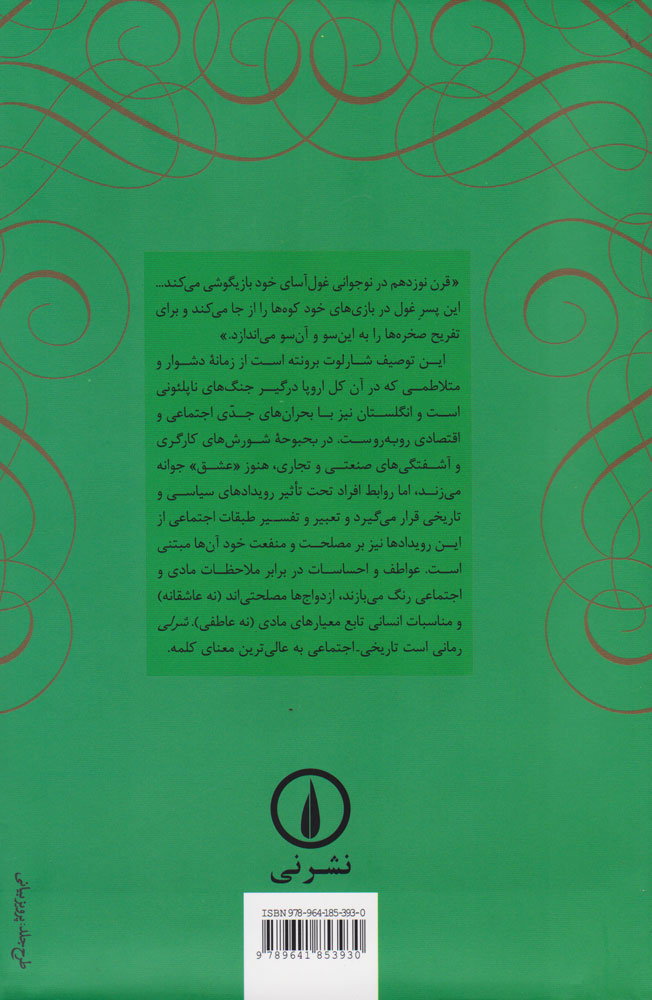 «قرن نوزدهم در نوجوانی غول‌آسای خود بازیگوشی می‌کند...
این پسرِ غول در بازی‌های خود کوه‌ها را از جا می‌کند و برای
تفریح صخره‌ها را به این‌سو و آن‌سو می‌اندازد.»
این توصیف شارلوت برونته است از زمانهٔ دشوار و
متلاطمی که در آن کل اروپا درگیر جنگ‌های ناپلئونی
است و انگلستان نیز با بحران‌های جدّی اجتماعی و
اقتصادی روبه‌روست. در بحبوحهٔ شورش‌های کارگری
و آشفتگی‌های صنعتی و تجاری، هنوز «عشق» جوانه
می‌زند، اما روابط افراد تحت تأثیر رویدادهای سیاسی و
تاریخی قرار می‌گیرد و تعبیر و تفسیر طبقات اجتماعی از
این رویدادها نیز بر مصلحت و منفعت خود آن‌ها مبتنی
است. عواطف و احساسات در برابر ملاحظات مادی و
اجتماعی رنگ می‌بازند، ازدواج‌ها مصلحتی‌اند (نه عاشقانه)
و مناسبات انسانی تابع معیارهای مادی (نه عاطفی). شرلی
رمانی است تاریخی-اجتماعی به عالی‌ترین معنای کلمه.
نشرنی
طرح جلد: پرویز بیانی
ISBN 978-964-185-393-0
9 789641 853930